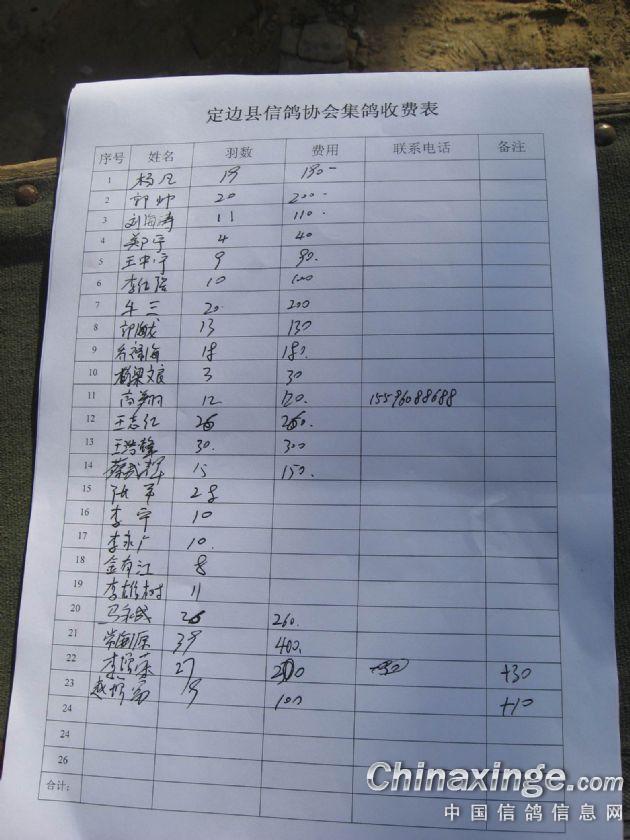 定边县信鸽协会集鸽收费表
序号 姓名 羽数 费用 联系电话 备注
1 杨凡 19 190-
2 郭帅 20 200-
3 刘海涛 11 110.
4 郑宇 4 40
5 王中宁 9 90.
6 10 100
7 牛三 20 200
8 郭海龙 13 130
9 18 180.
10 3 30
11 高翔 12 120. 15596088688
12 王志红 26 260.
13 王浩 30. 300
14 蔡武军 15 150.
15 张军 28
16 李宁 10
17 李永广 10.
18 金有江 8
19 李树 11
20 卫永成 26 260.
21 常海源 39 400.
22 27 +30
23 赵 19 100 +10
24
24
26
合计:
Chinaxinge.com
中国信鸽信息网